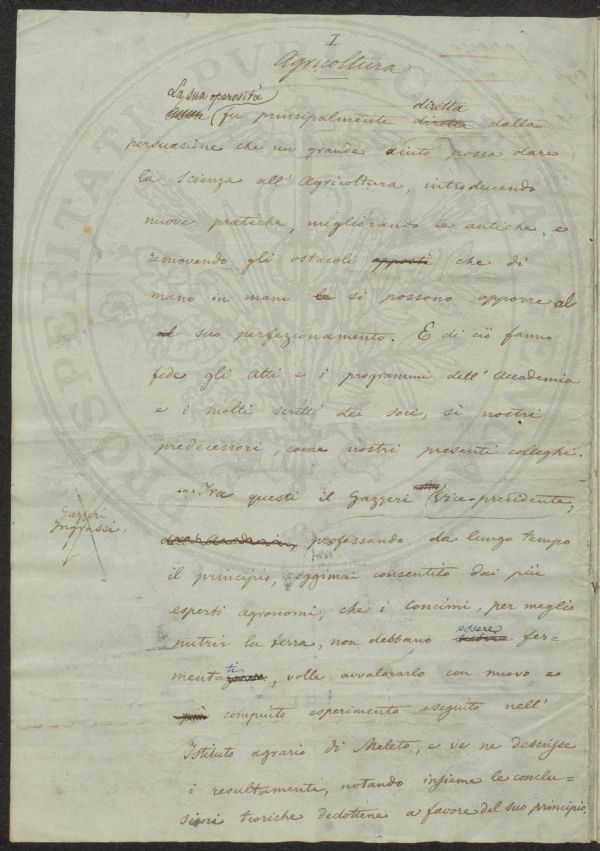 I
Agricoltura
La sua operosità
fu principalmente diretta diretta dalla
persuasione che un grande aiuto possa dare
la scienza all'Agricoltura, introducendo
nuove pratiche, migliorando le antiche, e
removendo gli ostacoli apposti che di
mano in mano le si possono opporre al
al suo perfezionamento. E di ciò fanno
fede gli Atti e i programmi dell'Accademia
e i molti scritti dei soci, sì nostri
predecessori, come nostri presenti colleghi.
Tra questi il Gazzeri nostro Vice-presidente,
Gazzeri
Ingrassi.
professando da lungo tempo
il principio, oggimai consentito dai più
esperti agronomi, che i concimi, per meglio
nutrir la terra, non debbano essere fer=
mentati, volle avvalorarlo con nuovo e
più compiuto esperimento eseguito nell'
Istituto agrario di Meleto, e ve ne descrisse
i resultamenti, notando insieme le conclu=
sioni teoriche dedottene a favore del suo principio.
PROSPERITATI PUBLICAE